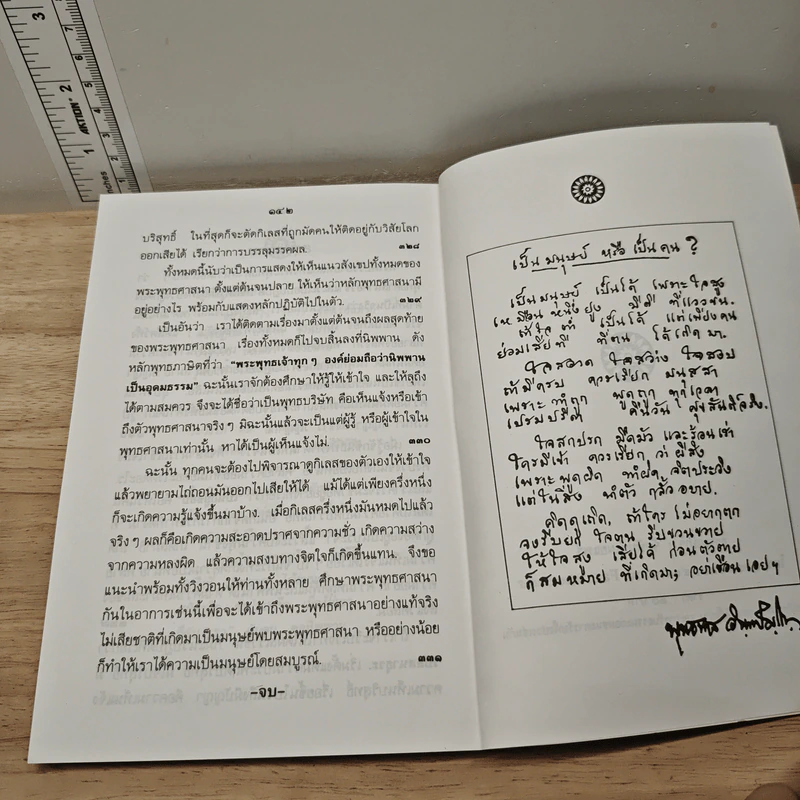 ๑๔๒
บริสุทธิ์ ในที่สุดก็จะตัดกิเลสที่ผูกมัดคนให้ติดอยู่กับวิสัยโลก
ออกเสียได้ เรียกว่าการบรรลุมรรคผล. ๓๒๘
ทั้งหมดนี้นับว่าเป็นการแสดงให้เห็นแนวสังเขปทั้งหมดของ
พระพุทธศาสนา ตั้งแต่ต้นจนปลาย ให้เห็นว่าหลักพุทธศาสนามี
อยู่อย่างไร พร้อมกับแสดงหลักปฏิบัติไปในตัว. ๓๒๙
เป็นอันว่า เราได้ติดตามเรื่องมาตั้งแต่ต้นจนถึงผลสุดท้าย
ของพระพุทธศาสนา เรื่องทั้งหมดก็ไปจบสิ้นลงที่นิพพาน ดัง
หลักพุทธภาษิตที่ว่า "พระพุทธเจ้าทุกๆ องค์ย่อมถือว่านิพพาน
เป็นอุดมธรรม" ฉะนั้นเราจักต้องศึกษาให้รู้ให้เข้าใจ และให้ลุถึง
ได้ตามสมควร จึงจะได้ชื่อว่าเป็นพุทธบริษัท คือเห็นแจ้งหรือเข้า
ถึงตัวพุทธศาสนาจริงๆ มิฉะนั้นแล้วจะเป็นแต่ผู้รู้ หรือผู้เข้าใจใน
พุทธศาสนาเท่านั้น หาได้เป็นผู้เห็นแจ้งไม่. ๓๓๐
ฉะนั้น ทุกคนจะต้องไปพิจารณาดูกิเลสของตัวเองให้เข้าใจ
แล้วพยายามไถ่ถอนมันออกไปเสียให้ได้ แม้ได้แต่เพียงครึ่งหนึ่ง
ก็จะเกิดความรู้แจ้งขึ้นมาบ้าง. เมื่อกิเลสครึ่งหนึ่งมันหมดไปแล้ว
จริงๆ ผลก็คือเกิดความสะอาดปราศจากความชั่ว เกิดความสว่าง
จากความหลงผิด แล้วความสงบทางจิตใจก็เกิดขึ้นแทน. จึงขอ
แนะนำพร้อมทั้งวิงวอนให้ท่านทั้งหลาย ศึกษาพระพุทธศาสนา
กันในอาการเช่นนี้เพื่อจะได้เข้าถึงพระพุทธศาสนาอย่างแท้จริง
ไม่เสียชาติที่เกิดมาเป็นมนุษย์พบพระพุทธศาสนา หรืออย่างน้อย
ก็ทำให้เราได้ความเป็นมนุษย์โดยสมบูรณ์. ๓๓๑
–จบ–
เป็นมนุษย์ หรือ เป็นคน ?
เป็นมนุษย์ เป็นได้ เพราะใจสูง
เหมือนหนึ่งยูง มีดี ที่แววขน.
ถ้าใจต่ำ เป็นได้ แต่เพียงคน
ย่อมเสียที ที่ตน ได้เกิดมา.
ใจสอาด ใจสว่าง ใจสงบ
ถ้ามีครบ ควรเรียก มนุสสา
เพราะทำถูก พูดถูก ทุกเวลา
เปรมปรีดา คืนวัน ศุขสันติ์จริง.
ใจสกปรก มืดมัว และร้อนเร่า
ใครมีเข้า ควรเรียก ว่าผีสิง
เพราะพูดผิด ทำผิด จิตประวิง
แต่ในสิ่ง นำตัว กลั้วอบาย.
คิดดูเถิด, ถ้าใคร ไม่อยากตก
จงรีบยก ใจตน รีบขวนขวาย
ให้ใจสูง เสียได้ ก่อนตัวตาย
ก็สมหมาย ที่เกิดมา; อย่าเชือนเอยฯ
พุทธทาส อินทปัญโญ
inches
AKTION
1
2
3